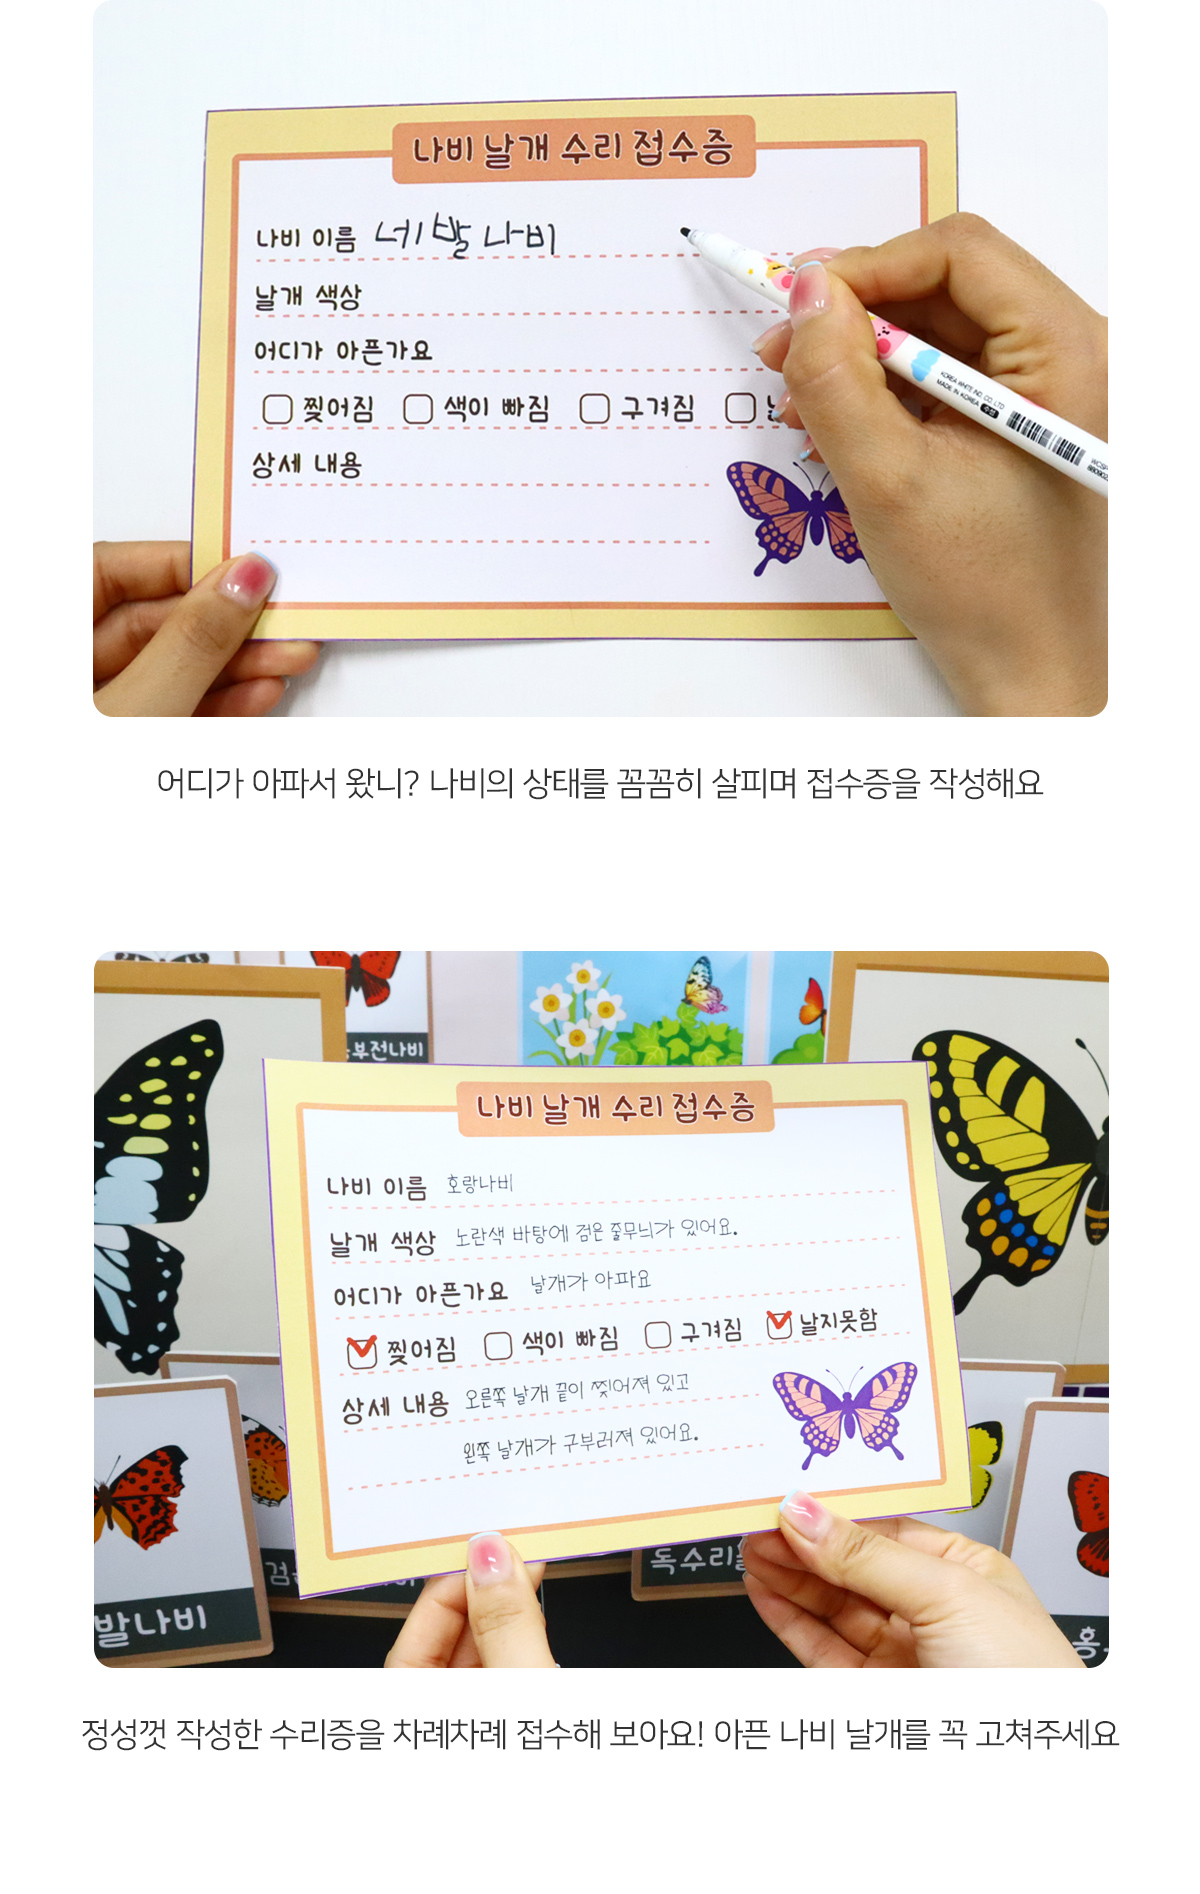 나비 날개 수리 접수증
나비 이름 네발나비
날개 색상
어디가 아픈가요
찢어짐 색이 빠짐 구겨짐
상세 내용
KOREA WHITE IND. CO., LTD
MADE IN KOREA 수성
어디가 아파서 왔니? 나비의 상태를 꼼꼼히 살피며 접수증을 작성해요
부전나비
나비 날개 수리 접수증
나비 이름 호랑나비
날개 색상 노란색 바탕에 검은 줄무늬가 있어요.
어디가 아픈가요 날개가 아파요
찢어짐 색이 빠짐 구겨짐 날지못함
상세 내용 오른쪽 날개 끝이 찢어져 있고
왼쪽 날개가 구부러져 있어요.
검은
독수리
발나비
홍
정성껏 작성한 수리증을 차례차례 접수해 보아요! 아픈 나비 날개를 꼭 고쳐주세요